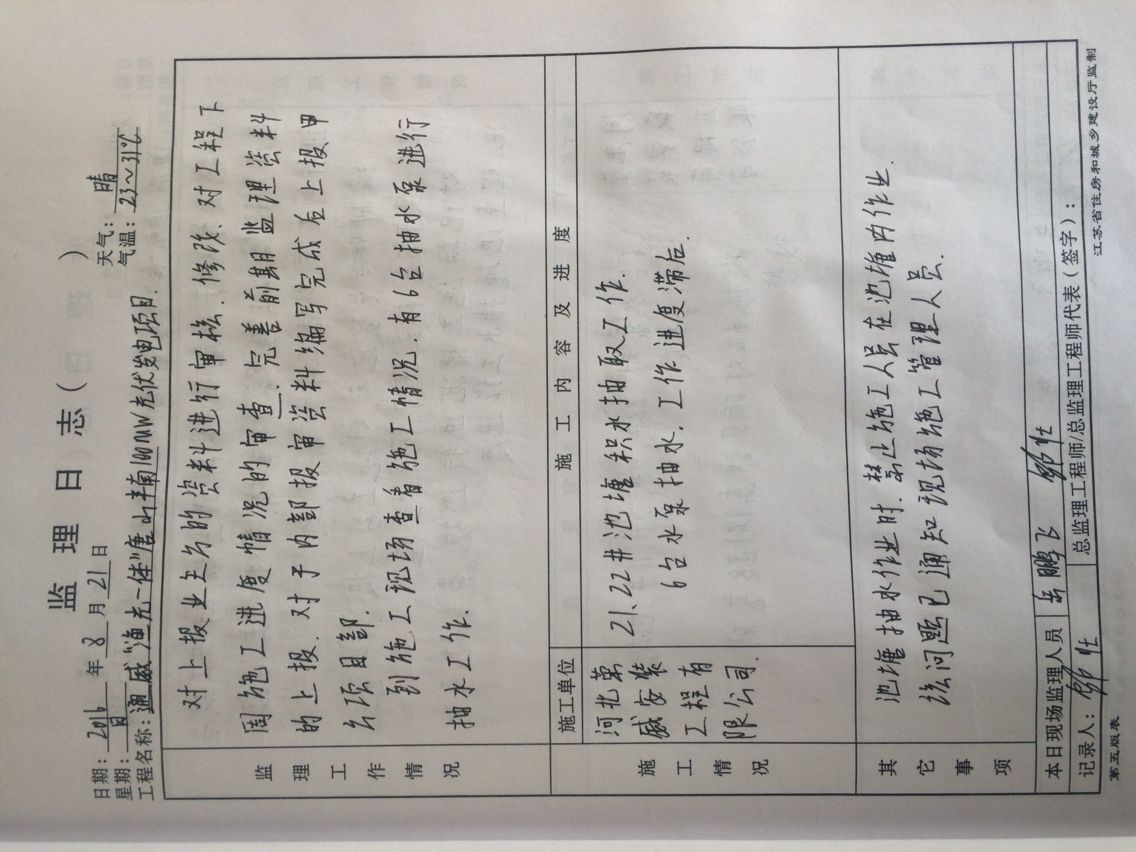 监理日志( )
日期: 2016 年 8 月 21 日 天气: 晴
星期: 日 气温: 23~31℃
工程名称: 通威"渔光一体"唐山丰南100MW光伏发电项目.
监理工作情况
对上报业主的资料进行审核、修改、对工程下
周施工进度情况的审查, 完善前期监理资料
的上报. 对于内部报审资料编写完成后上报甲
方项目部.
到施工现场查看施工情况: 有6台抽水泵进行
抽水工作.
施工情况
施工单位 施工内容及进度
河北
威安装
工程有
限公司.
21、22#池塘积水抽取工作.
6台水泵抽水. 工作进度滞后.
其它事项
池塘抽水作业时. 禁止施工人员在池塘内作业.
该问题已通知现场施工管理人员.
本日现场监理人员 岳鹏飞
记录人: 总监理工程师/总监理工程师代表(签字):
第五版表 江苏省住房和城乡建设厅监制